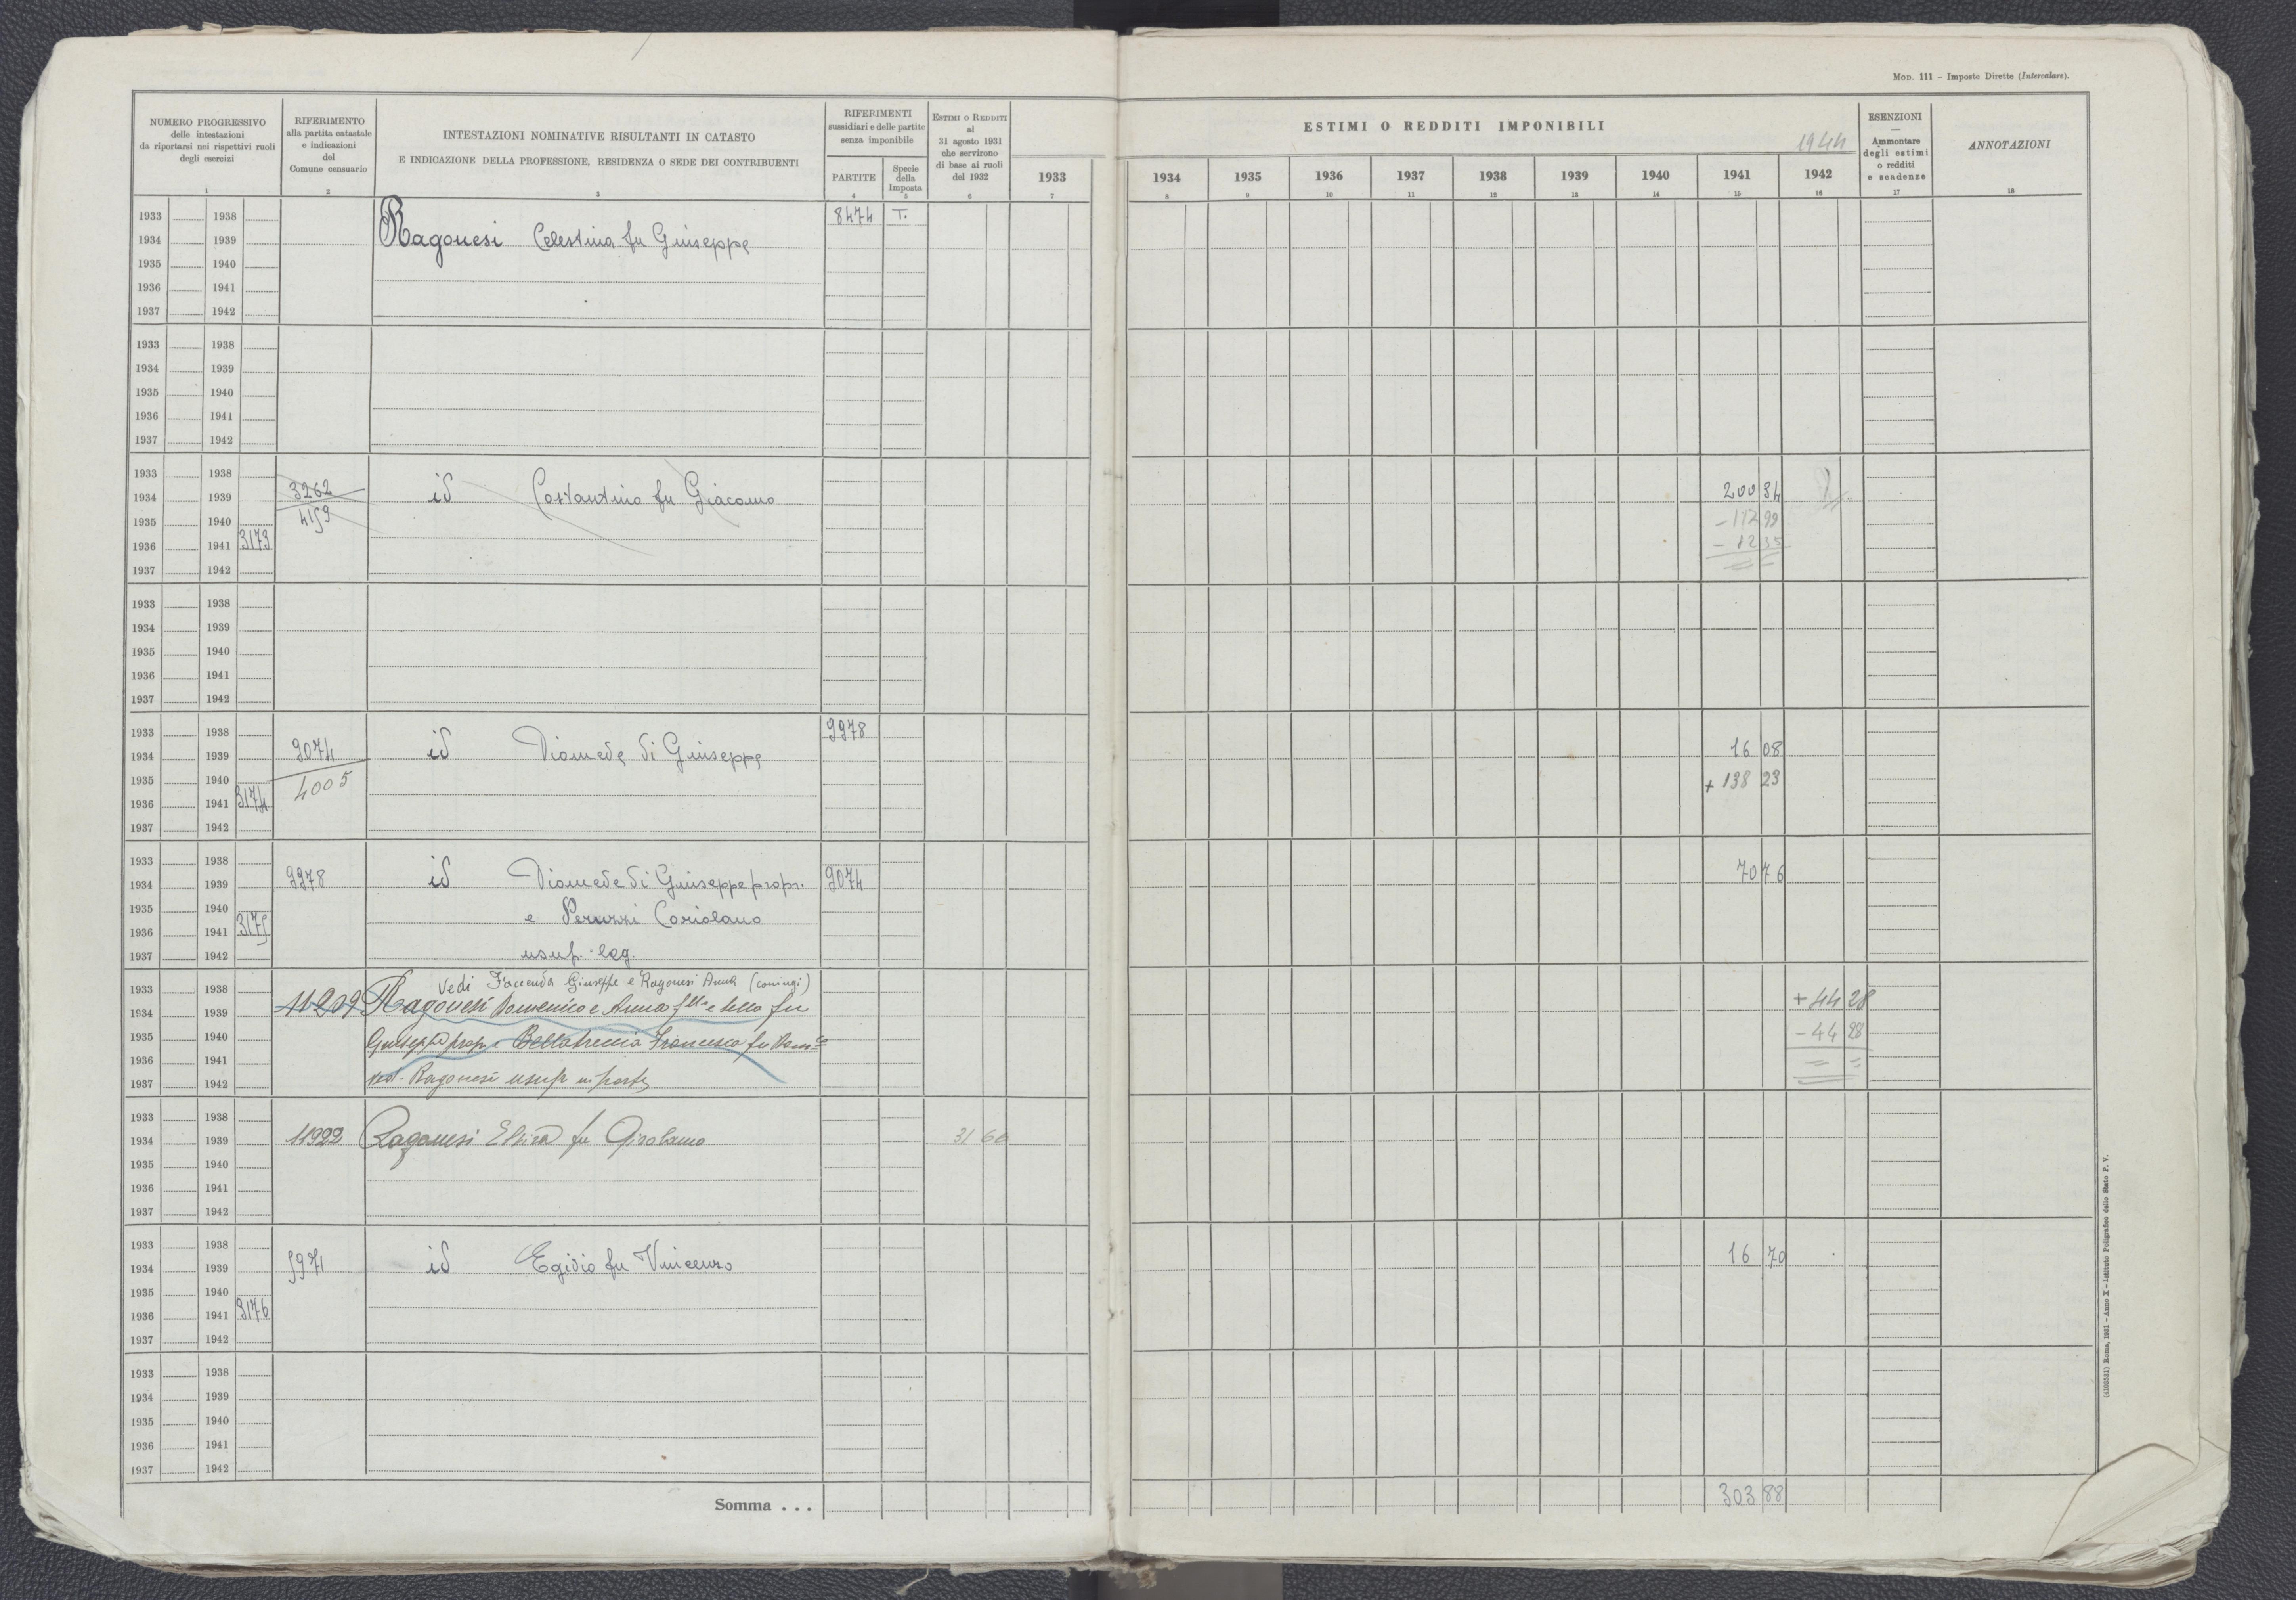 Mod. 111 - Imposte Dirette (Intercalare).
NUMERO PROGRESSIVO
delle intestazioni
da riportarsi nei rispettivi ruoli
degli esercizi
1
RIFERIMENTO
alla partita catastale
e indicazioni
del
Comune censuario
2
INTESTAZIONI NOMINATIVE RISULTANTI IN CATASTO
E INDICAZIONE DELLA PROFESSIONE, RESIDENZA O SEDE DEI CONTRIBUENTI
3
RIFERIMENTI
sussidiari e delle partite
senza imponibile
PARTITE
4
Specie
della
Imposta
5
Estimi o Redditi
al
31 agosto 1931
che servirono
di base ai ruoli
del 1932
6
1933
7
ESTIMI O REDDITI IMPONIBILI
1944
1934 1935 1936 1937 1938 1939 1940 1941 1942
8 9 10 11 12 13 14 15 16
ESENZIONI
—
Ammontare
degli estimi
o redditi
e scadenze
17
ANNOTAZIONI
18
1933 1938 8474 T.
1934 1939 Ragonesi Celestina fu Giuseppe
1935 1940
1936 1941
1937 1942
1933 1938
1934 1939
1935 1940
1936 1941
1937 1942
1933 1938
1934 1939 3262 id Costantino fu Giacomo 200 34
1935 1940 4159 - 117 99
1936 1941 3173 - 82 35
1937 1942
1933 1938
1934 1939
1935 1940
1936 1941
1937 1942
1933 1938 9978
1934 1939 9074 id Diomede di Giuseppe 16 08
1935 1940 4005 + 138 23
1936 1941 3174
1937 1942
1933 1938
1934 1939 9978 id Diomede di Giuseppe propr. 9074 70 76
1935 1940 e Peruzzi Coriolano
1936 1941 3175
1937 1942 usuf. leg.
1933 1938 Vedi Faccenda Giuseppe e Ragonesi Anna (coniugi)
1934 1939 11209 Ragonesi Domenico e Anna f.lli e sello fu + 44 28
1935 1940 Giuseppe prop. e Bellatreccia Francesca fu Dom.co - 44 28
1936 1941
1937 1942 ved. Ragonesi usuf in parte
1933 1938
1934 1939 11922 Ragonesi Elvira fu Girolamo 31 60
1935 1940
1936 1941
1937 1942
1933 1938
1934 1939 5971 id Egidio fu Vincenzo 16 70
1935 1940
1936 1941 3176
1937 1942
1933 1938
1934 1939
1935 1940
1936 1941
1937 1942
Somma . . . 303 88
(4103521) Roma, 1931 - Anno X - Istituto Poligrafico dello Stato P. V.